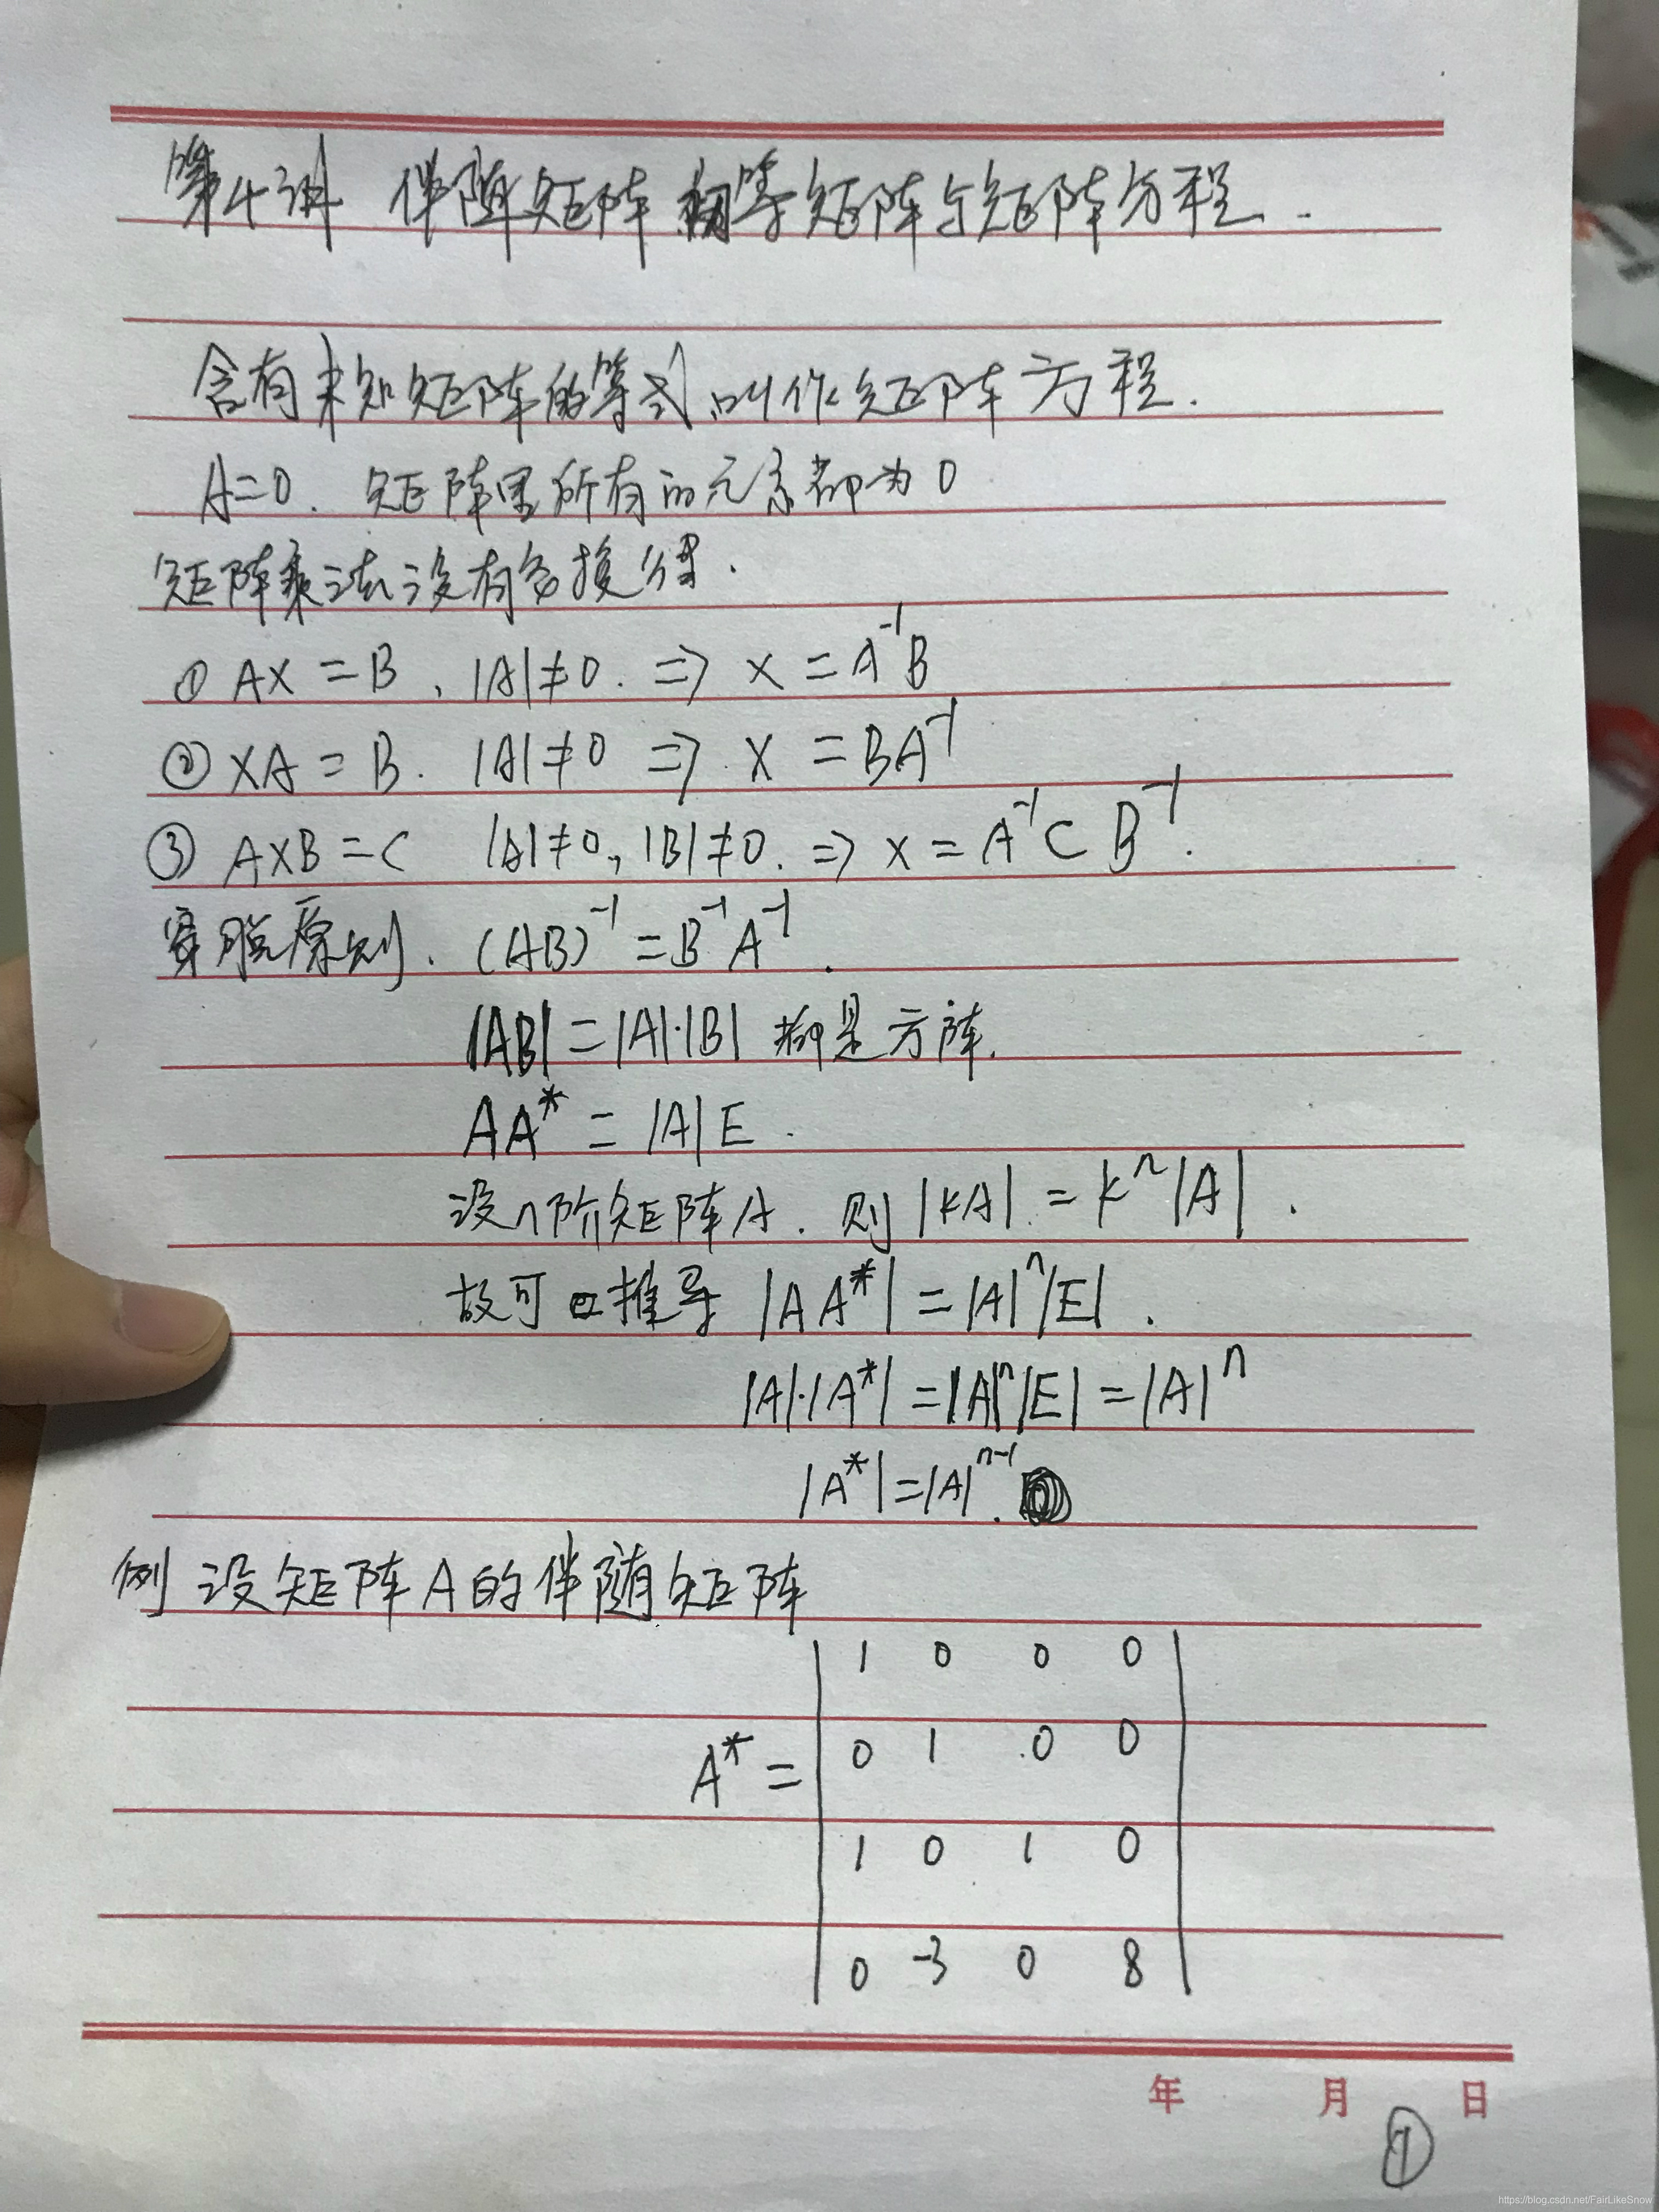 第4讲 伴随矩阵 初等矩阵与矩阵方程.
含有未知矩阵的等式,叫作矩阵方程.
A=0. 矩阵里所有的元素都为0
矩阵乘法没有交换律.
① AX = B , |A|≠0. ⇒ X = A⁻¹B
② XA = B. |A|≠0 ⇒ X = BA⁻¹
③ AXB = C |A|≠0, |B|≠0. ⇒ X = A⁻¹CB⁻¹.
穿脱原则. (AB)⁻¹ = B⁻¹A⁻¹.
|AB| = |A|·|B| 都是方阵.
AA* = |A|E.
设n阶矩阵A. 则|kA| = kⁿ|A|.
故可 推导 |AA*| = |A|ⁿ|E|.
|A|·|A*| = |A|ⁿ|E| = |A|ⁿ
|A*| = |A|ⁿ⁻¹.
例 设矩阵A的伴随矩阵
1 0 0 0
0 1 0 0
A* =
1 0 1 0
0 -3 0 8
年 月 日
①
https://blog.csdn.net/FairLikeSnow